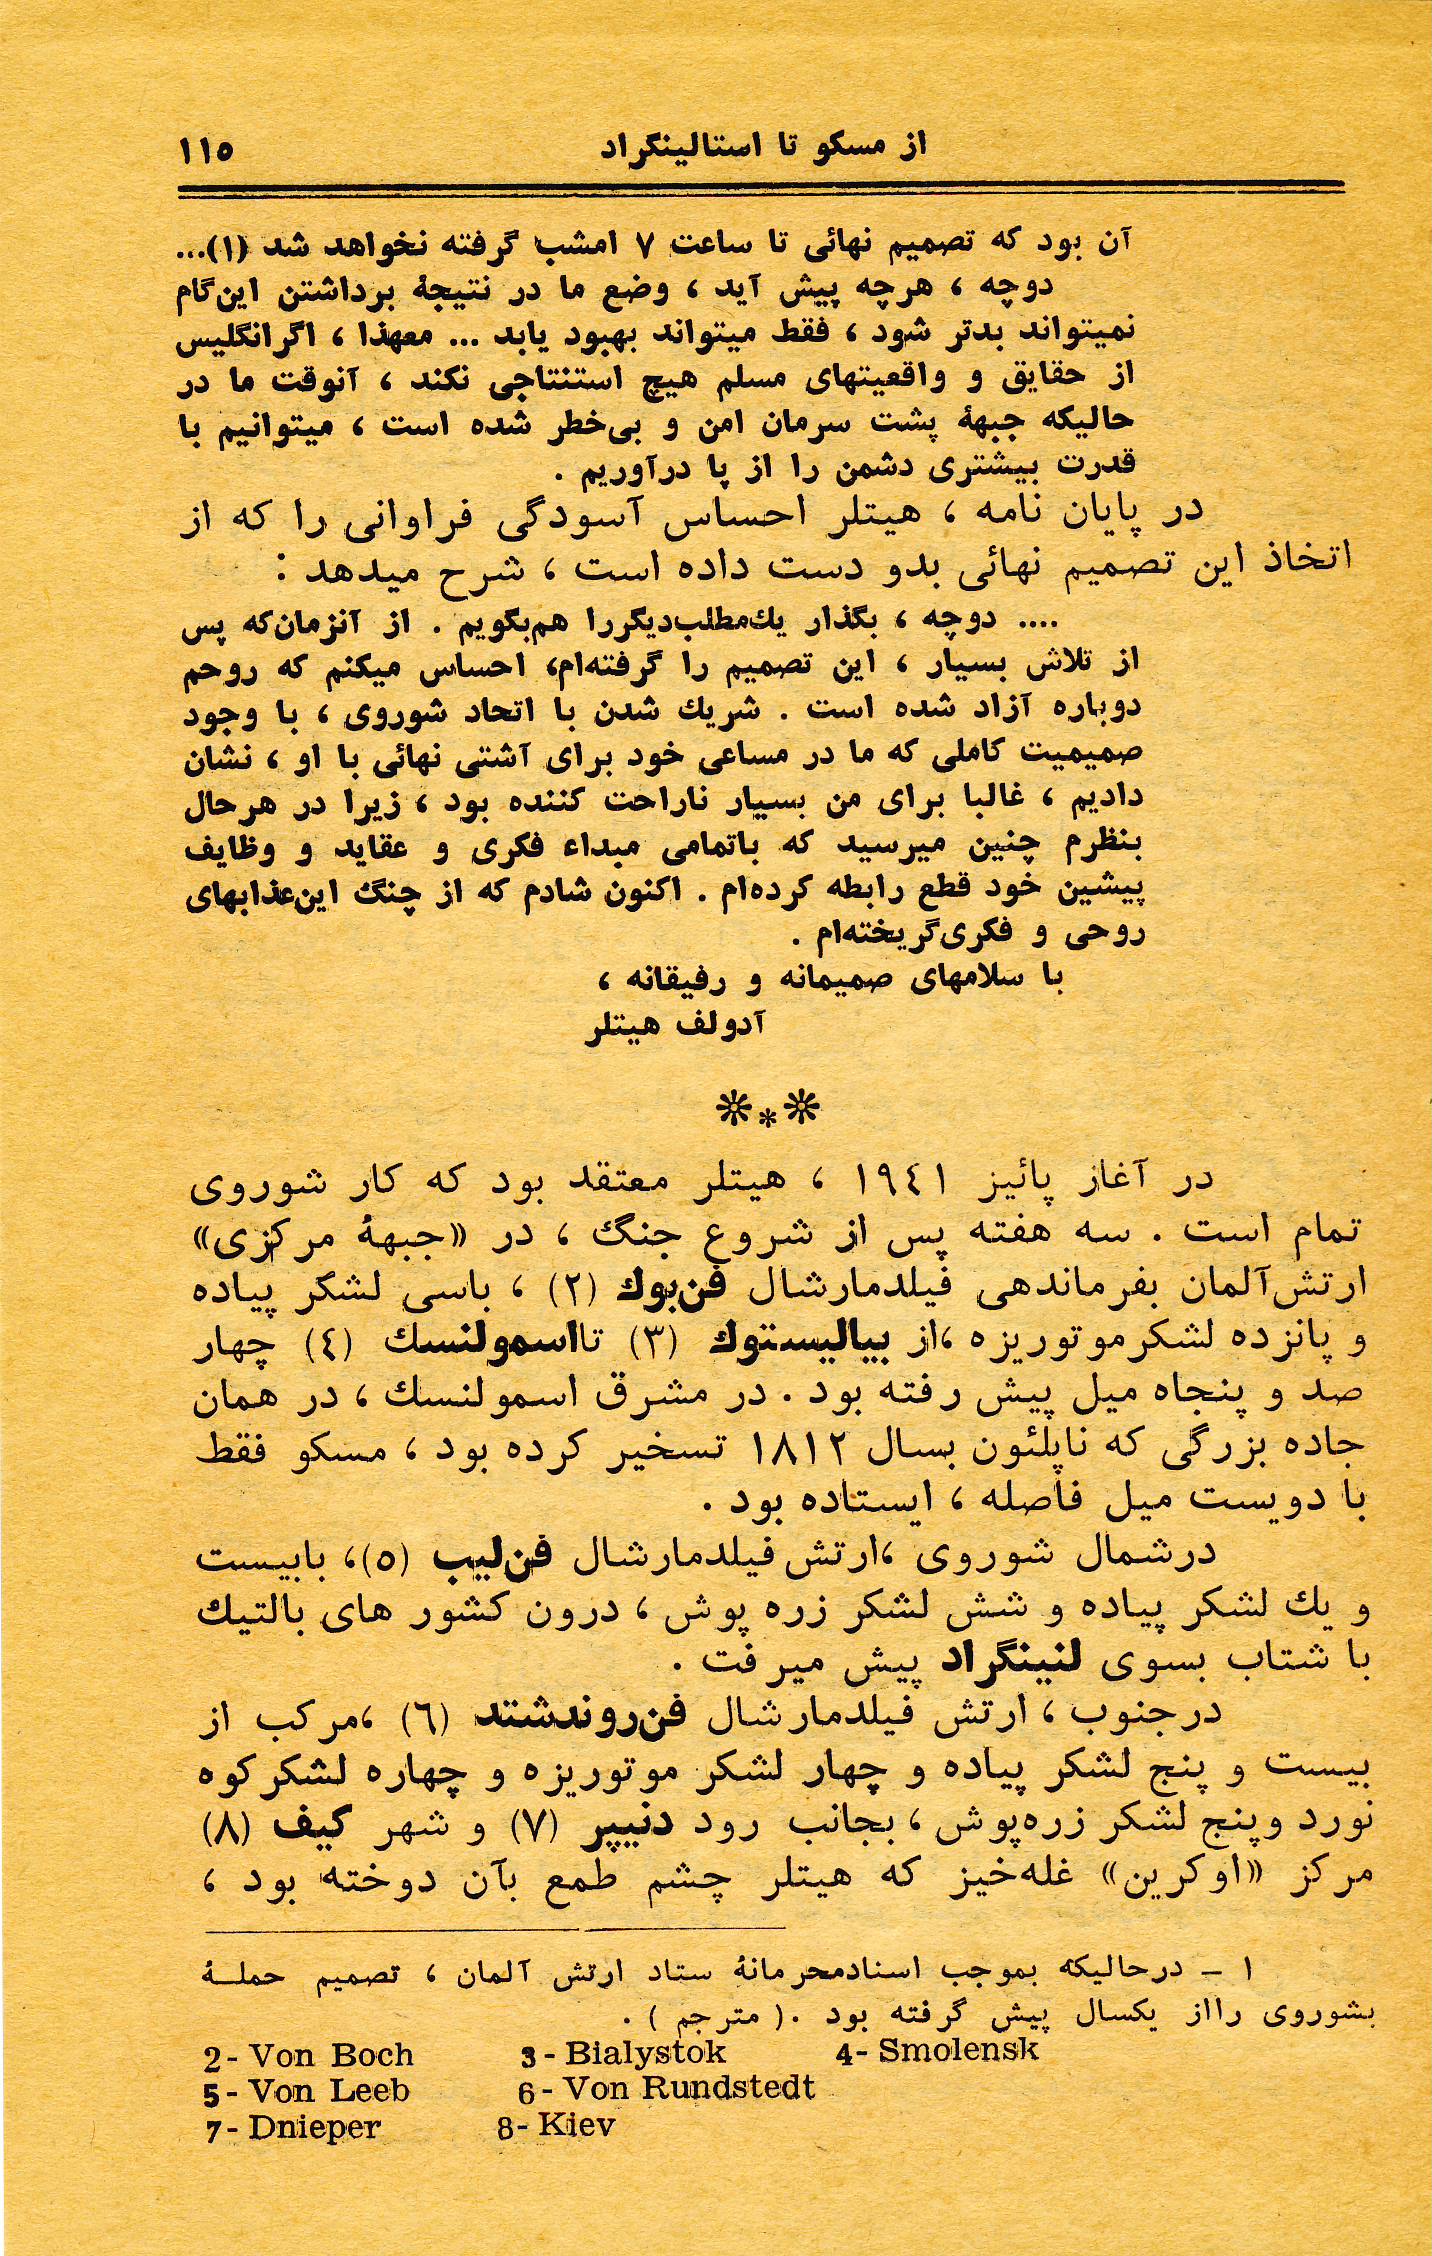 از مسکو تا استالینگراد ۱۱۵
آن بود که تصمیم نهائی تا ساعت ۷ امشب گرفته نخواهد شد (۱)...
دوچه ، هرچه پیش آید ، وضع ما در نتیجهٔ برداشتن این گام
نمیتواند بدتر شود ، فقط میتواند بهبود یابد ... معهذا ، اگر انگلیس
از حقایق و واقعیتهای مسلم هیچ استنتاجی نکند ، آنوقت ما در
حالیکه جبههٔ پشت سرمان امن و بی‌خطر شده است ، میتوانیم با
قدرت بیشتری دشمن را از پا درآوریم .
در پایان نامه ، هیتلر احساس آسودگی فراوانی را که از
اتخاذ این تصمیم نهائی بدو دست داده است ، شرح میدهد :
.... دوچه ، بگذار یك‌مطلب‌دیگررا هم‌بگویم . از آنزمان‌که پس
از تلاش بسیار ، این تصمیم را گرفته‌ام، احساس میکنم که روحم
دوباره آزاد شده است . شریك شدن با اتحاد شوروی ، با وجود
صمیمیت کاملی که ما در مساعی خود برای آشتی نهائی با او ، نشان
دادیم ، غالبا برای من بسیار ناراحت کننده بود ، زیرا در هرحال
بنظرم چنین میرسید که باتمامی مبداء فکری و عقاید و وظایف
پیشین خود قطع رابطه کرده‌ام . اکنون شادم که از چنگ این‌عذابهای
روحی و فکری‌گریخته‌ام .
با سلامهای صمیمانه و رفیقانه ،
آدولف هیتلر
* * *
در آغاز پائیز ۱۹٤۱ ، هیتلر معتقد بود که کار شوروی
تمام است . سه هفته پس از شروع جنگ ، در «جبههٔ مرکزی»
ارتش‌آلمان بفرماندهی فیلدمارشال فن‌بوك (۲) ، باسی لشگر پیاده
و پانزده لشکر موتوریزه ،از بیالیستوك (۳) تااسمولنسك (٤) چهار
صد و پنجاه میل پیش رفته بود . در مشرق اسمولنسك ، در همان
جاده بزرگی که ناپلئون بسال ۱۸۱۲ تسخیر کرده بود ، مسکو فقط
با دویست میل فاصله ، ایستاده بود .
درشمال شوروی ،ارتش فیلدمارشال فن‌لیب (۵)، بابیست
و یك لشکر پیاده و شش لشکر زره پوش ، درون کشور های بالتیك
با شتاب بسوی لنینگراد پیش میرفت .
درجنوب ، ارتش فیلدمارشال فن‌روندشتد (٦) ،مرکب از
بیست و پنج لشکر پیاده و چهار لشکر موتوریزه و چهاره لشکر کوه
نورد وپنج لشکر زره‌پوش ، بجانب رود دنیپر (۷) و شهر کیف (۸)
مرکز «اوکرین» غله‌خیز که هیتلر چشم طمع بآن دوخته بود ،
۱ – درحالیکه بموجب اسنادمحرمانهٔ ستاد ارتش آلمان ، تصمیم حملـهٔ
بشوروی رااز یکسال پیش گرفته بود .( مترجم ) .
2- Von Boch 3- Bialystok 4- Smolensk
5- Von Leeb 6- Von Rundstedt
7- Dnieper 8- Kiev